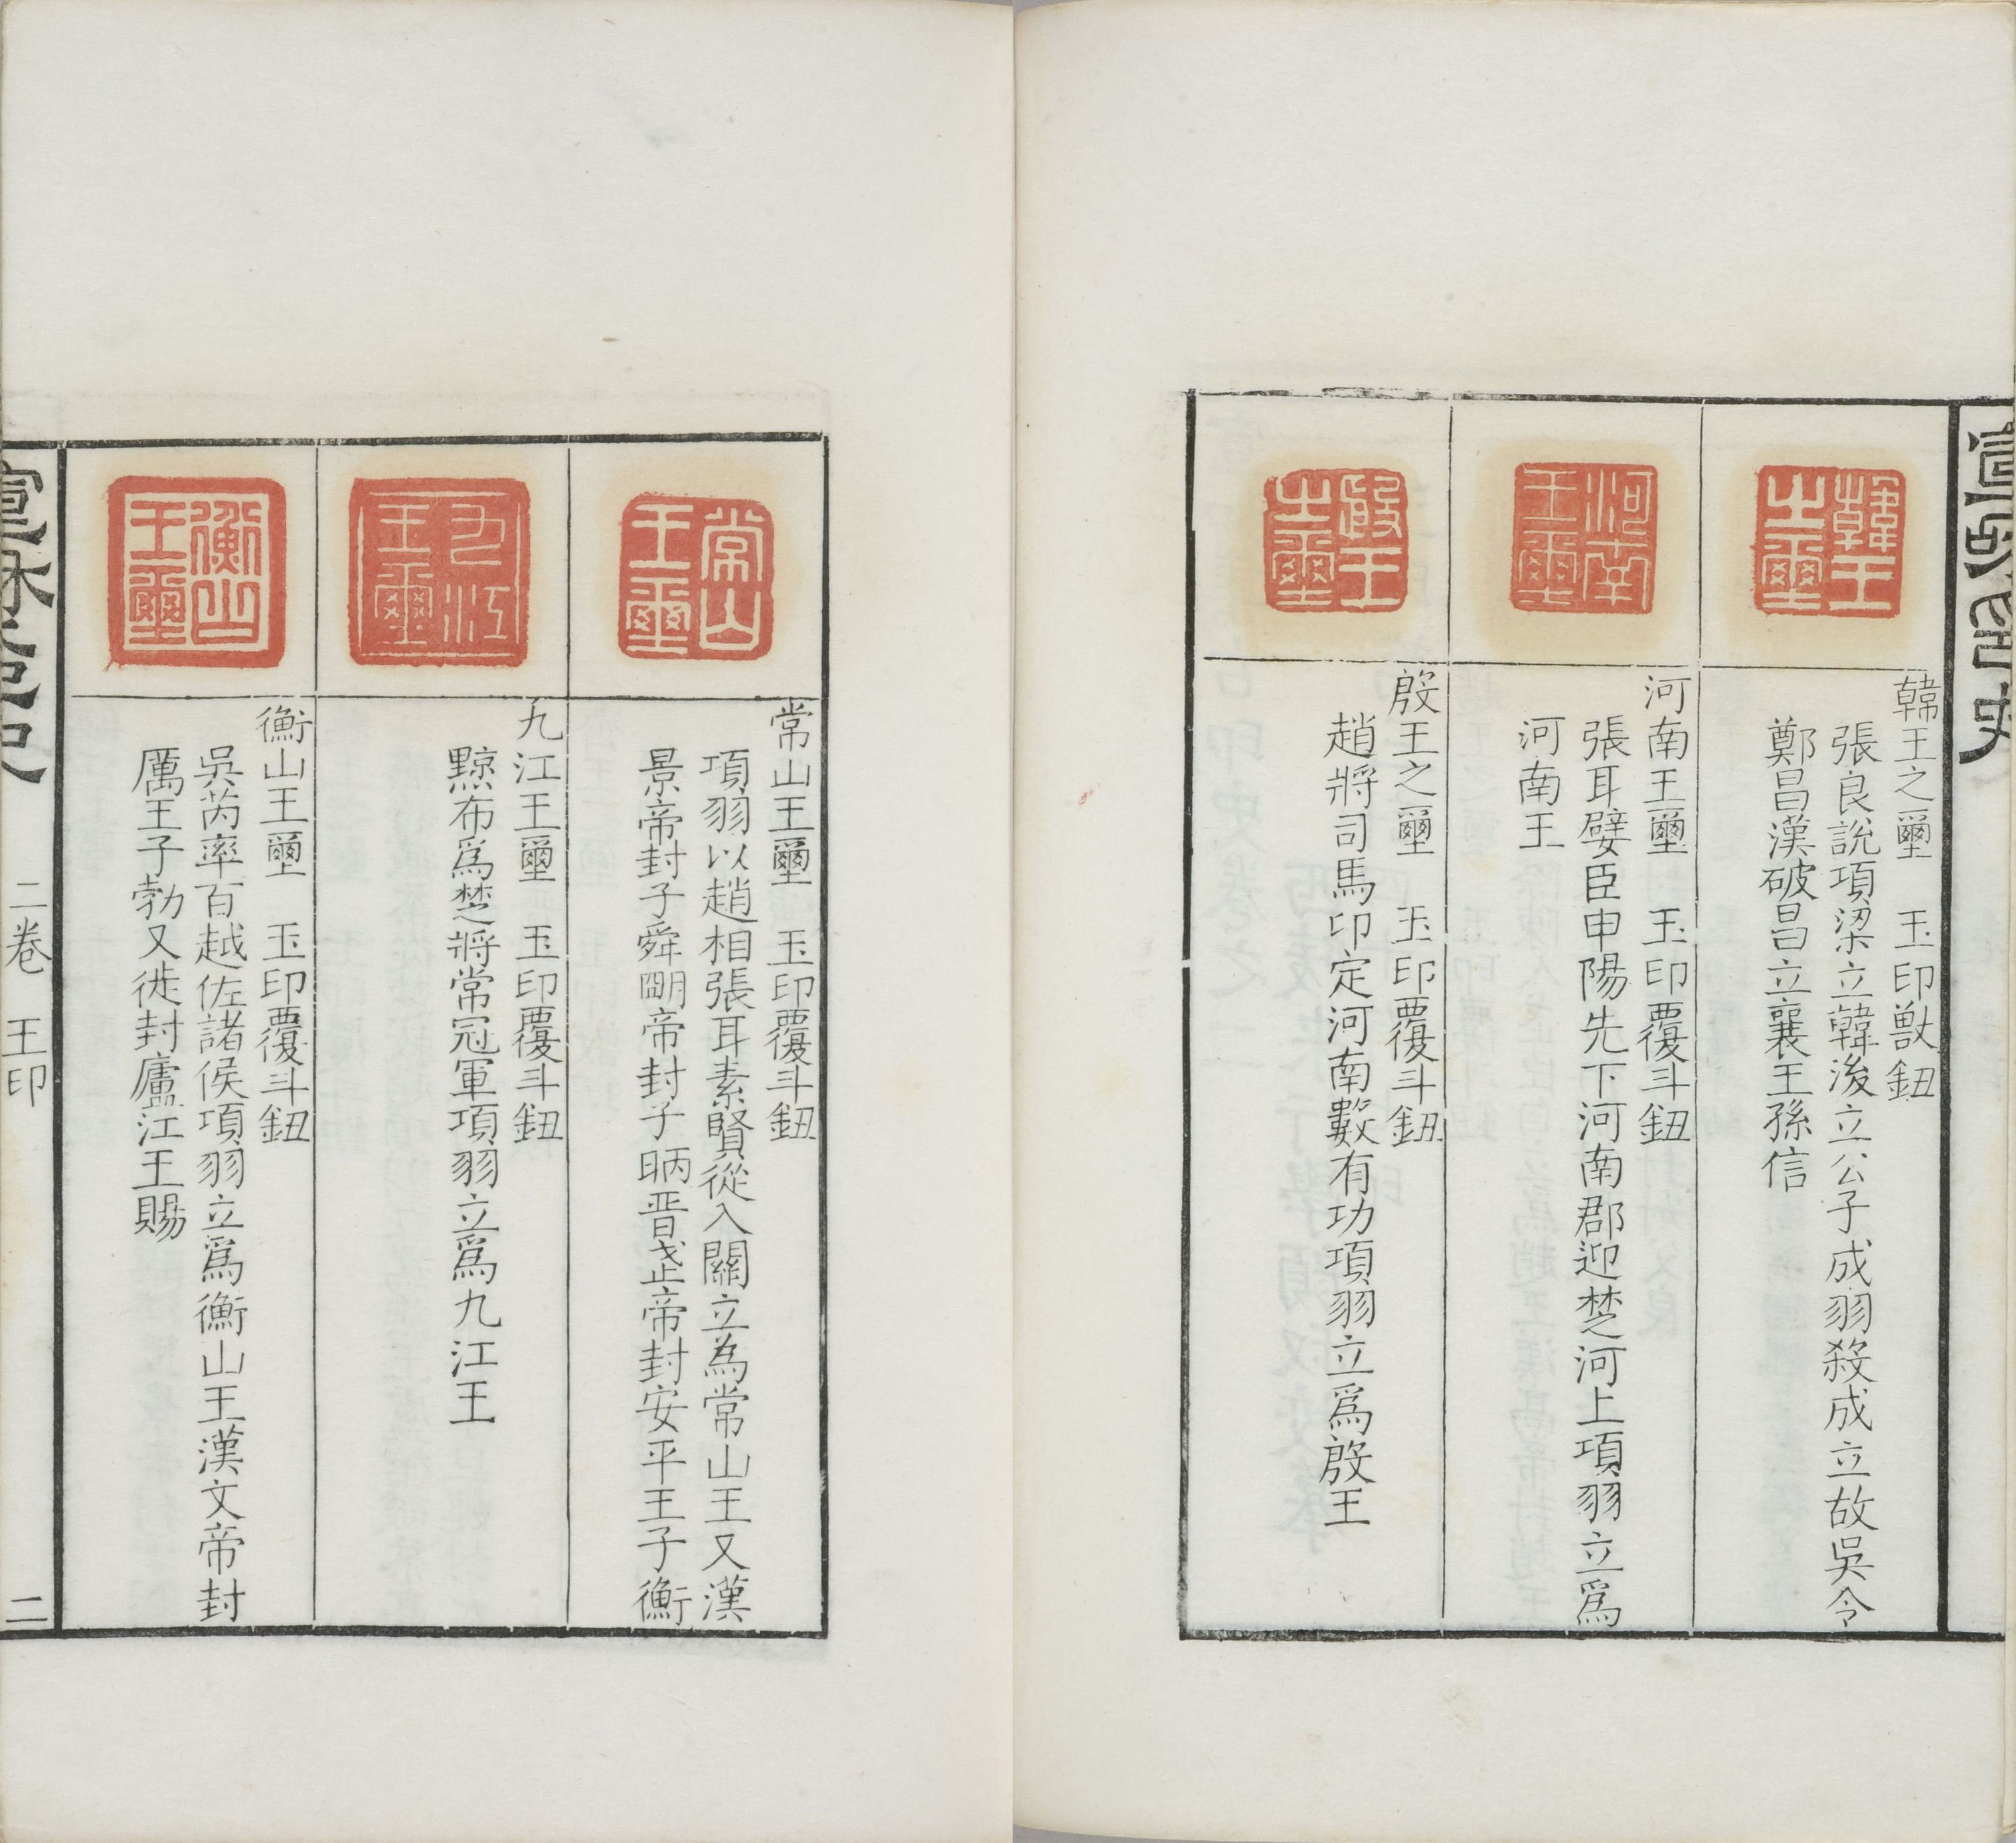 韓王之璽
韓王之璽　玉印獸鈕
張良說項梁立韓後立公子成羽殺成立故吳令
鄭昌漢破昌立襄王孫信
河南王璽
河南王璽　玉印覆斗鈕
張耳嬖臣申陽先下河南郡迎楚河上項羽立爲
河南王
殷王之璽
殷王之璽　玉印覆斗鈕
趙將司馬卬定河南數有功項羽立爲殷王
常山王璽
常山王璽　玉印覆斗鈕
項羽以趙相張耳素賢從入關立為常山王又漢
景帝封子舜朙帝封子昞晋武帝封安平王子衡
九江王璽
九江王璽　玉印覆斗鈕
黥布爲楚將常冠軍項羽立爲九江王
衡山王璽
衡山王璽　玉印覆斗鈕
吳芮率百越佐諸侯項羽立爲衡山王漢文帝封
厲王子勃又徙封廬江王賜
二卷　王印　二